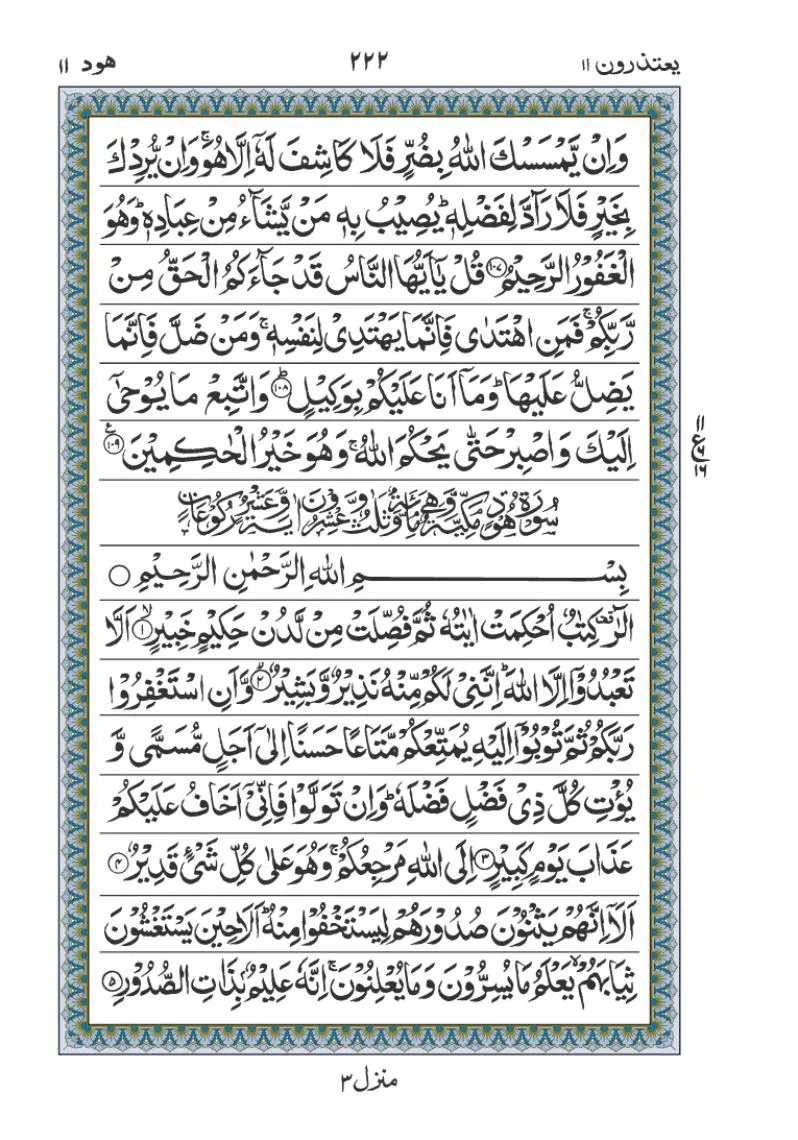 يعتذرون ١١
٢٢٢
هود ١١
وَاِنْ يَّمْسَسْكَ اللّٰهُ بِضُرٍّ فَلَا كَاشِفَ لَهٗۤ اِلَّا هُوَ ۚ وَاِنْ يُّرِدْكَ
بِخَيْرٍ فَلَا رَآدَّ لِفَضْلِهٖ ؕ يُصِيْبُ بِهٖ مَنْ يَّشَآءُ مِنْ عِبَادِهٖ ؕ وَهُوَ
الْغَفُوْرُ الرَّحِيْمُ ﴿۱۰۷﴾ قُلْ يٰۤاَيُّهَا النَّاسُ قَدْ جَآءَكُمُ الْحَقُّ مِنْ
رَّبِّكُمْ ۚ فَمَنِ اهْتَدٰى فَاِنَّمَا يَهْتَدِىْ لِنَفْسِهٖ ۚ وَمَنْ ضَلَّ فَاِنَّمَا
يَضِلُّ عَلَيْهَا ۚ وَمَاۤ اَنَا عَلَيْكُمْ بِوَكِيْلٍ ؕ ﴿۱۰۸﴾ وَاتَّبِعْ مَا يُوْحٰۤى
اِلَيْكَ وَاصْبِرْ حَتّٰى يَحْكُمَ اللّٰهُ ۚ وَهُوَ خَيْرُ الْحٰكِمِيْنَ ﴿۱۰۹﴾ ع
١١
ع
١٦
سُوْرَةُ هُوْدٍ مَكِّيَّةٌ وَّهِيَ مِائَةٌ وَّثَلٰثٌ وَّعِشْرُوْنَ اٰيَةً وَّعَشْرُ رُكُوْعَاتٍ
بِسْمِ اللّٰهِ الرَّحْمٰنِ الرَّحِيْمِ ○
الٓرٰ ۟ كِتٰبٌ اُحْكِمَتْ اٰيٰتُهٗ ثُمَّ فُصِّلَتْ مِنْ لَّدُنْ حَكِيْمٍ خَبِيْرٍ ۙ ﴿۱﴾ اَلَّا
تَعْبُدُوْۤا اِلَّا اللّٰهَ ؕ اِنَّنِىْ لَكُمْ مِّنْهُ نَذِيْرٌ وَّبَشِيْرٌ ۙ ﴿۲﴾ وَّاَنِ اسْتَغْفِرُوْا
رَبَّكُمْ ثُمَّ تُوْبُوْۤا اِلَيْهِ يُمَتِّعْكُمْ مَّتَاعًا حَسَنًا اِلٰۤى اَجَلٍ مُّسَمًّى وَّ
يُؤْتِ كُلَّ ذِىْ فَضْلٍ فَضْلَهٗ ؕ وَاِنْ تَوَلَّوْا فَاِنِّىْۤ اَخَافُ عَلَيْكُمْ
عَذَابَ يَوْمٍ كَبِيْرٍ ﴿۳﴾ اِلَى اللّٰهِ مَرْجِعُكُمْ ۚ وَهُوَ عَلٰى كُلِّ شَىْءٍ قَدِيْرٌ ﴿۴﴾
اَلَاۤ اِنَّهُمْ يَثْنُوْنَ صُدُوْرَهُمْ لِيَسْتَخْفُوْا مِنْهُ ؕ اَلَا حِيْنَ يَسْتَغْشُوْنَ
ثِيَابَهُمْ ۙ يَعْلَمُ مَا يُسِرُّوْنَ وَمَا يُعْلِنُوْنَ ۚ اِنَّهٗ عَلِيْمٌۢ بِذَاتِ الصُّدُوْرِ ﴿۵﴾
منزل ۳